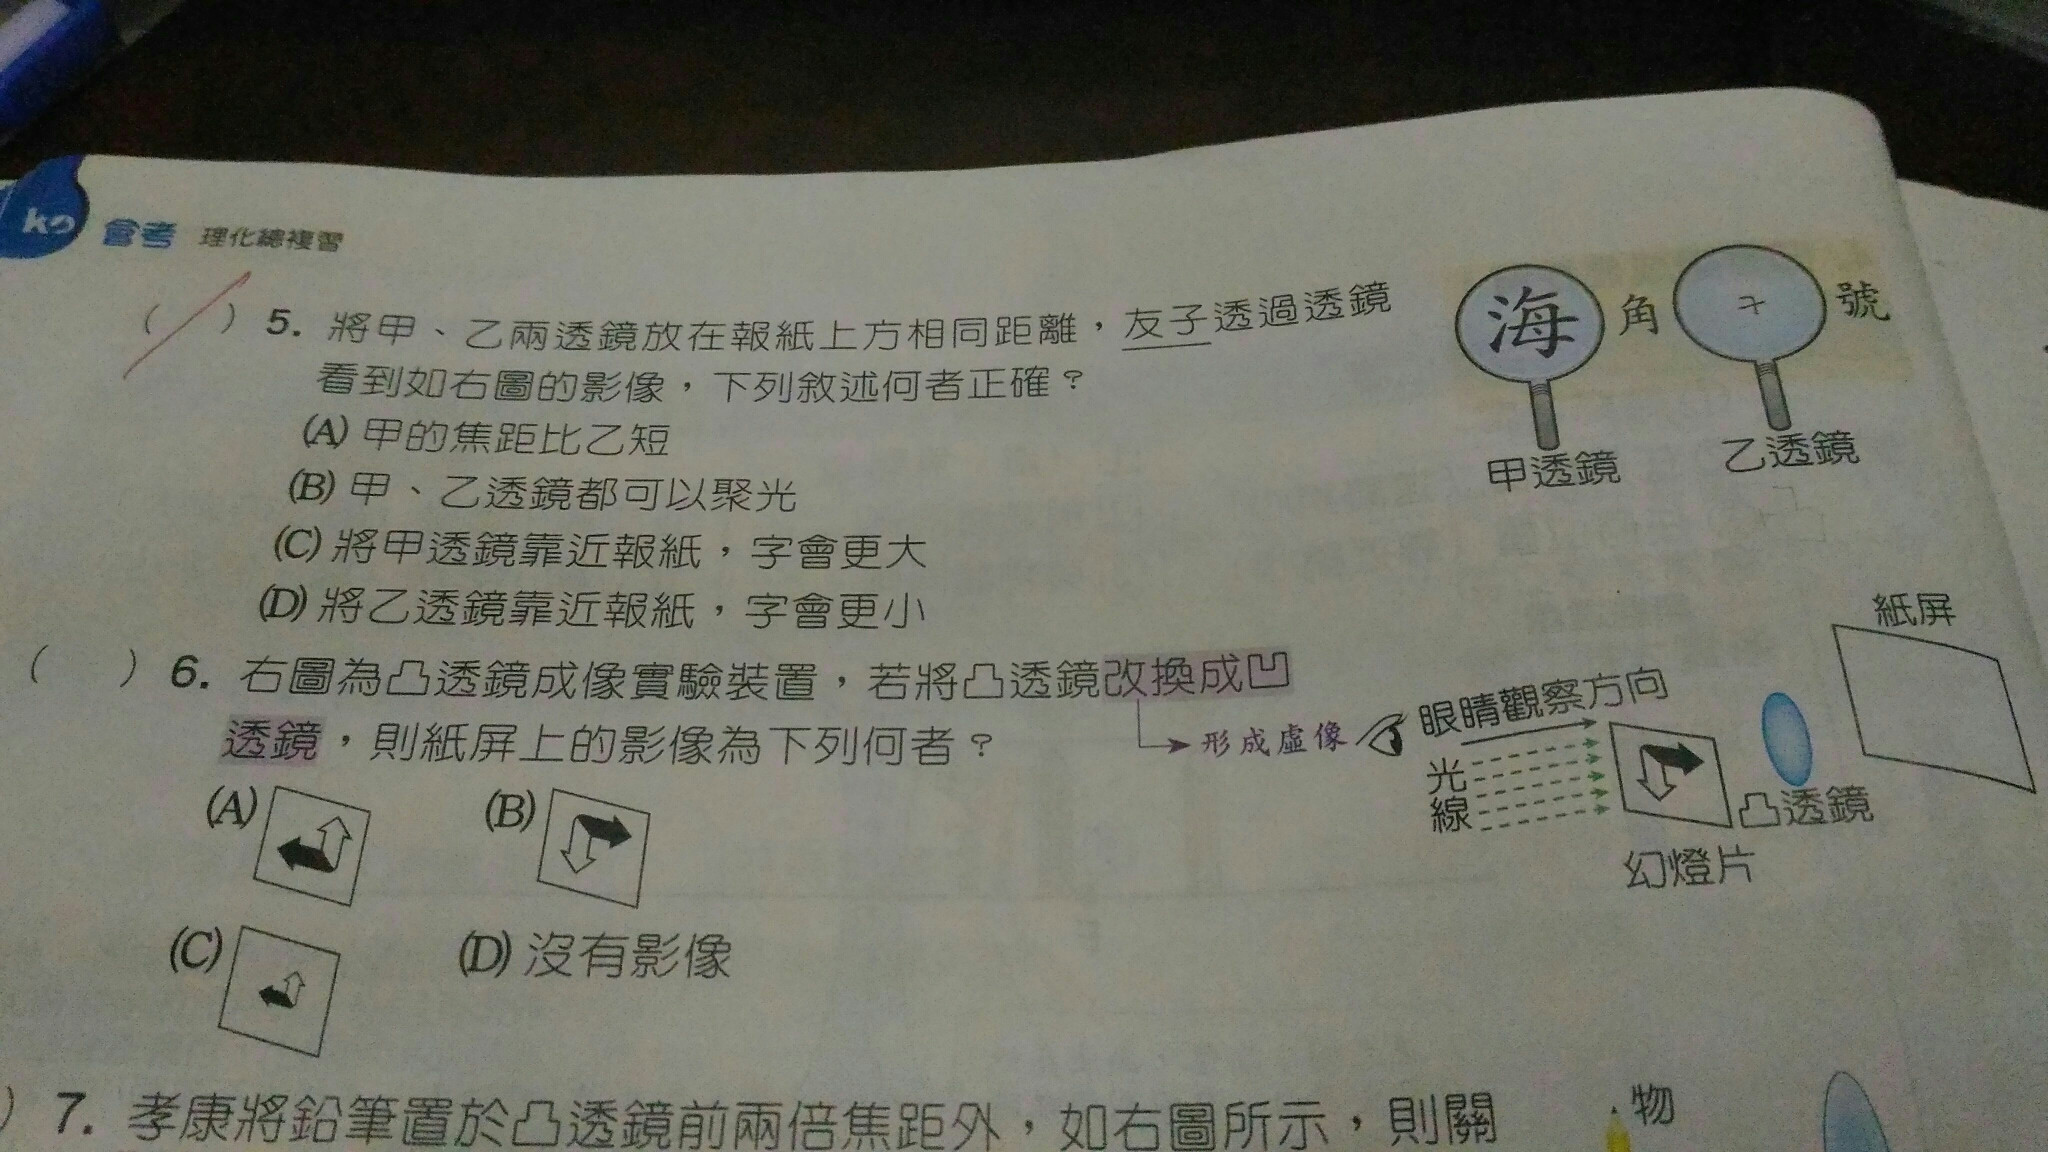 ko 會考 理化總複習
( ) 5. 將甲、乙兩透鏡放在報紙上方相同距離,友子透過透鏡
看到如右圖的影像,下列敘述何者正確?
(A) 甲的焦距比乙短
(B) 甲、乙透鏡都可以聚光
(C) 將甲透鏡靠近報紙,字會更大
(D) 將乙透鏡靠近報紙,字會更小
海 角 七 號
甲透鏡 乙透鏡
( ) 6. 右圖為凸透鏡成像實驗裝置,若將凸透鏡改換成凹
透鏡,則紙屏上的影像為下列何者?
形成虛像
(A) (B)
(C) (D) 沒有影像
紙屏
眼睛觀察方向
光線
凸透鏡
幻燈片
) 7. 孝康將鉛筆置於凸透鏡前兩倍焦距外,如右圖所示,則關
物